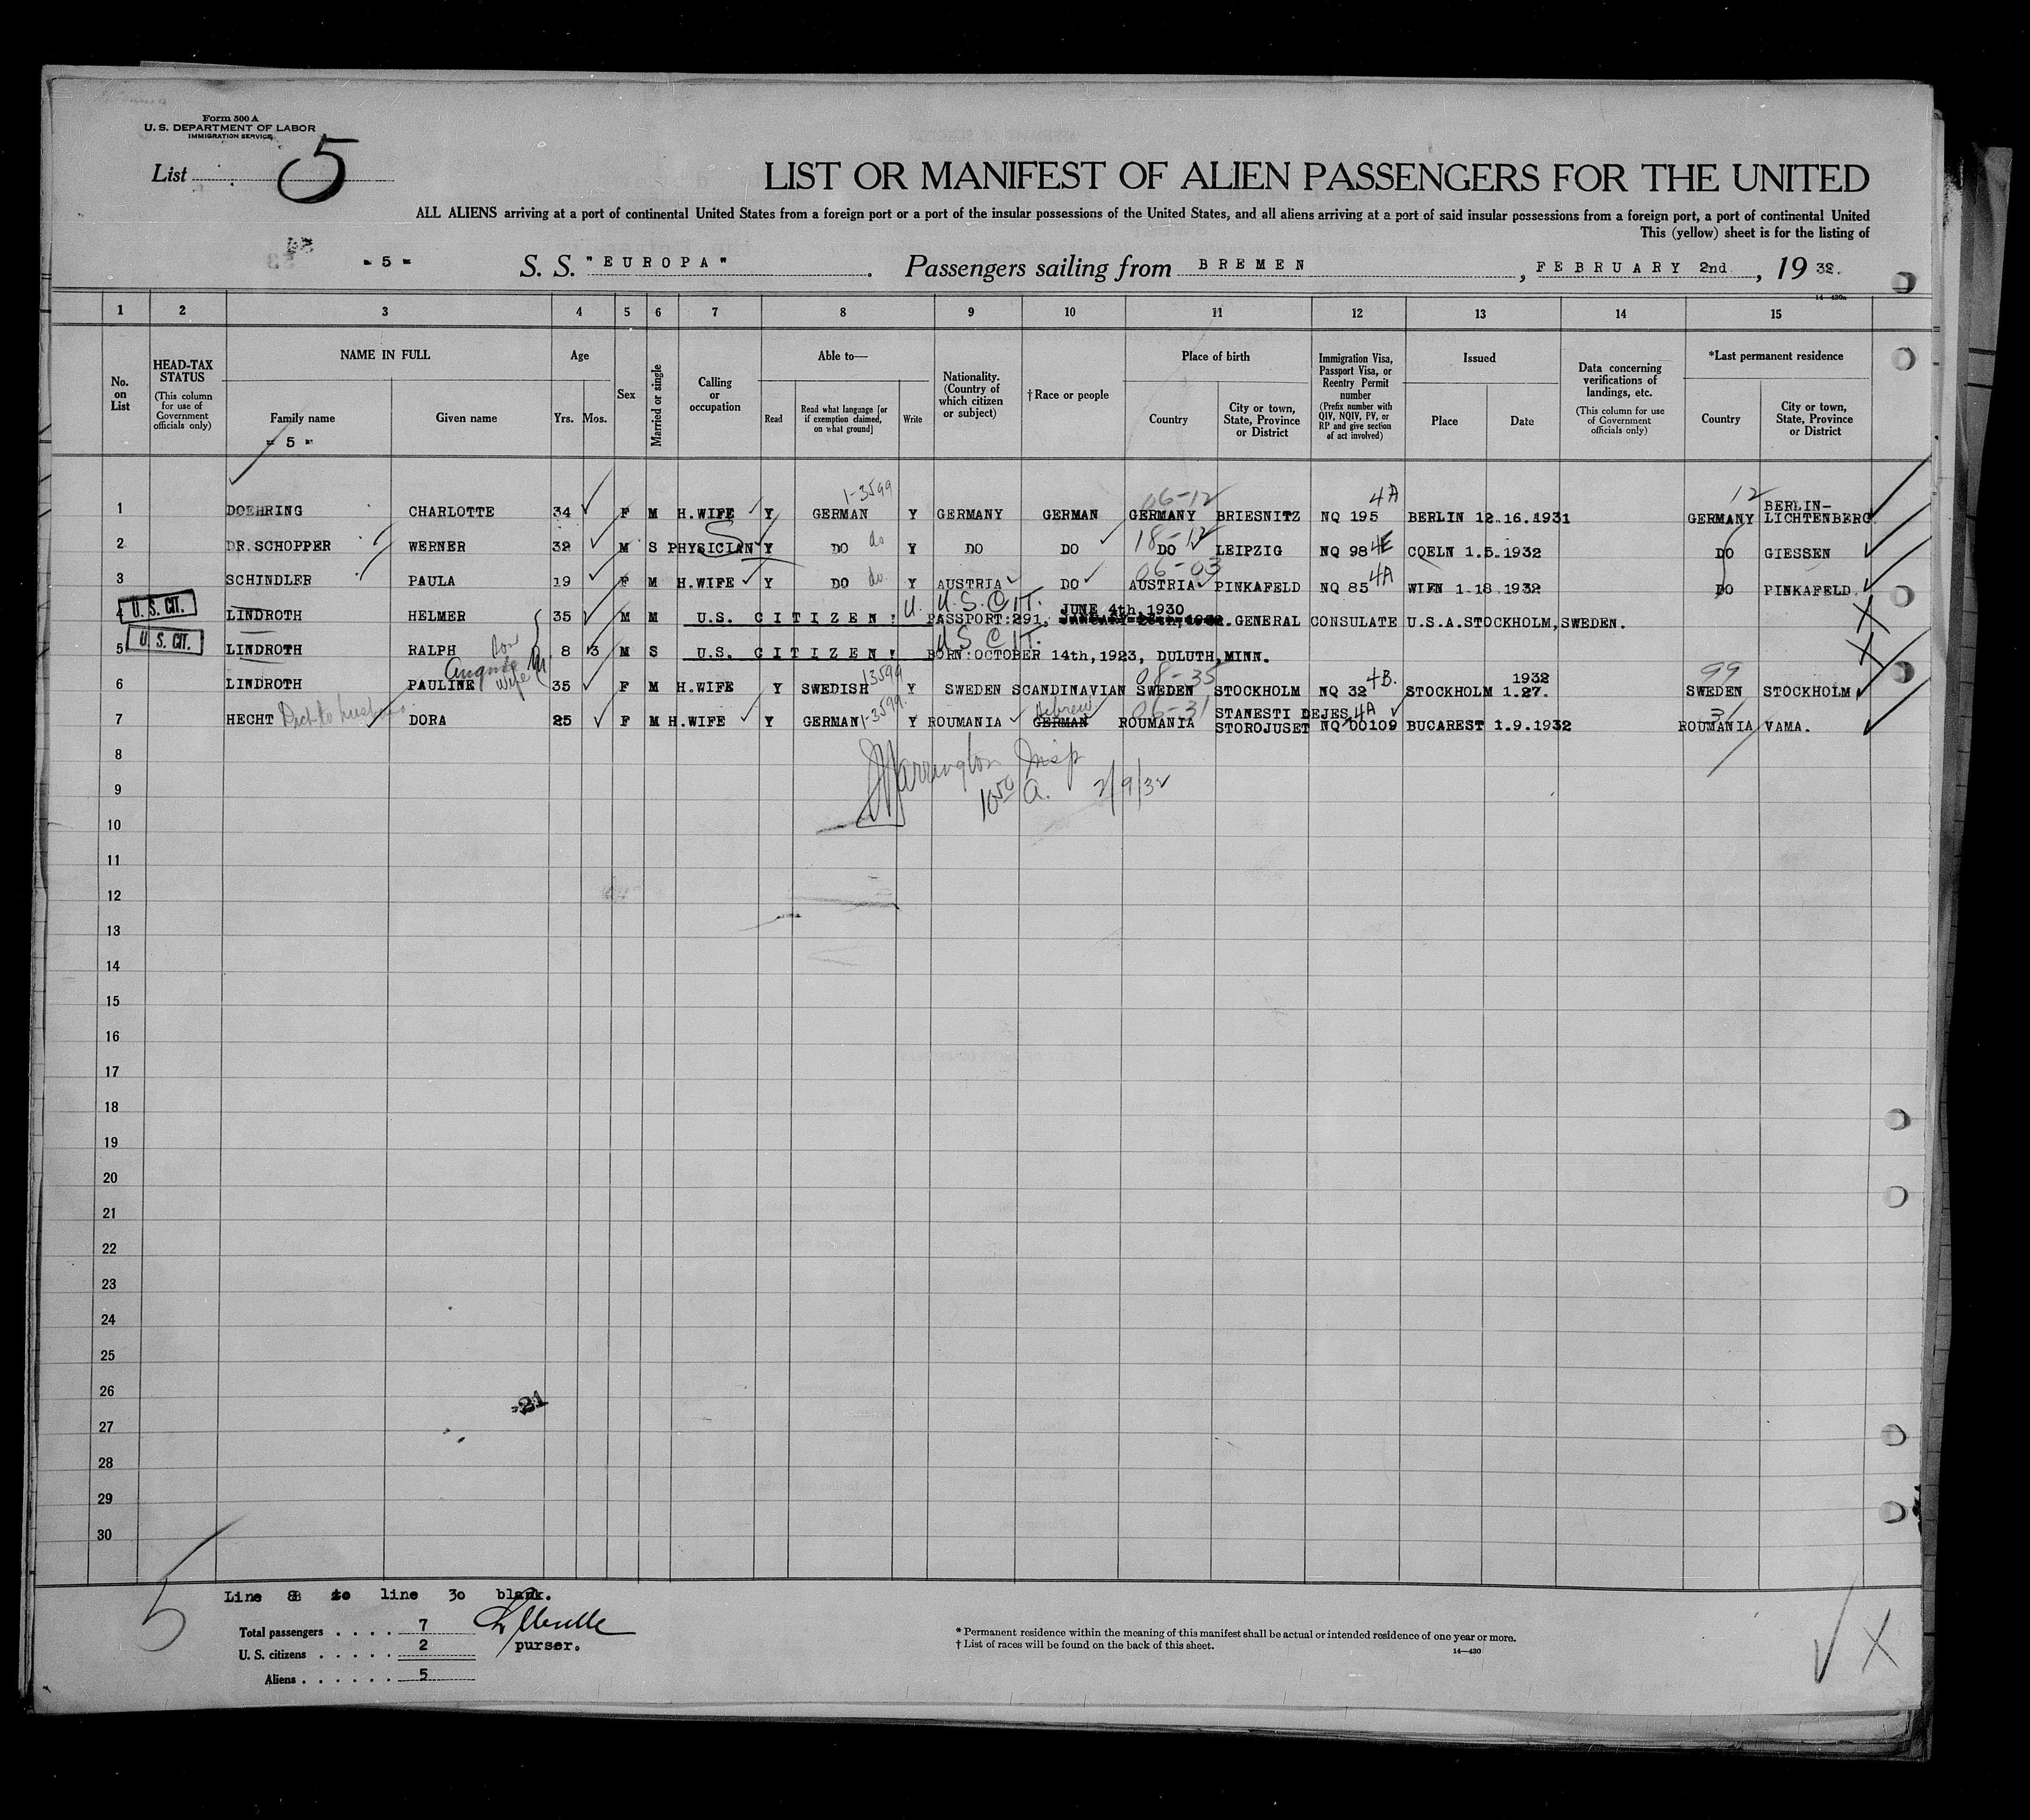 Form 500 A
U. S. DEPARTMENT OF LABOR
IMMIGRATION SERVICE
List 5
LIST OR MANIFEST OF ALIEN PASSENGERS FOR THE UNITED
ALL ALIENS arriving at a port of continental United States from a foreign port or a port of the insular possessions of the United States, and all aliens arriving at a port of said insular possessions from a foreign port, a port of continental United
This (yellow) sheet is for the listing of
- 5 - S. S. "EUROPA". Passengers sailing from BREMEN, FEBRUARY 2nd, 19 32.
14—430a
1 2 3 4 5 6 7 8 9 10 11 12 13 14 15
No. on List
HEAD-TAX STATUS (This column for use of Government officials only)
NAME IN FULL
Family name Given name
- 5 -
Age
Yrs. Mos.
Sex
Married or single
Calling or occupation
Able to—
Read Read what language [or if exemption claimed, on what ground] Write
Nationality. (Country of which citizen or subject)
†Race or people
Place of birth
Country City or town, State, Province or District
Immigration Visa, Passport Visa, or Reentry Permit number (Prefix number with QIV, NQIV, PV, or RP and give section of act involved)
Issued
Place Date
Data concerning verifications of landings, etc. (This column for use of Government officials only)
*Last permanent residence
Country City or town, State, Province or District
1-3599 06-12 4A 12
1 DOEHRING CHARLOTTE 34 F M H.WIFE Y GERMAN Y GERMANY GERMAN GERMANY BRIESNITZ NQ 195 BERLIN 12.16.1931 GERMANY BERLIN-LICHTENBERG
2 DR.SCHOPPER WERNER 32 M S PHYSICIAN Y DO do Y DO DO 18-12 DO LEIPZIG NQ 98 4E COELN 1.5.1932 DO GIESSEN
3 SCHINDLER PAULA 19 F M H.WIFE Y DO do. Y AUSTRIA DO 06-03 AUSTRIA PINKAFELD NQ 85 4A WIEN 1.18.1932 DO PINKAFELD.
U. S. CIT.
U. U.S. CIT. JUNE 4th, 1930
4 LINDROTH HELMER 35 M M U.S. CITIZEN! PASSPORT:291, GENERAL CONSULATE U.S.A.STOCKHOLM,SWEDEN.
U. S. CIT.
U S CIT.
5 LINDROTH RALPH 8 3 M S U.S. CITIZEN! BORN:OCTOBER 14th,1923, DULUTH,MINN.
son
wife
6 LINDROTH PAULINE 35 F M H.WIFE Y SWEDISH 13599 Y SWEDEN SCANDINAVIAN 08-35 SWEDEN STOCKHOLM NQ 32 4B. STOCKHOLM 1.27. 1932 99 SWEDEN STOCKHOLM
7 HECHT DORA 25 F M H.WIFE Y GERMAN 1-3599 Y ROUMANIA GERMAN Hebrew 06-31 ROUMANIA STANESTI DEJES, STOROJUSET 4A NQ 00109 BUCAREST 1.9.1932 31 ROUMANIA VAMA.
8
Insp
9
10 50 A. 2/9/32
10
11
12
13
14
15
16
17
18
19
20
21
22
23
24
25
26
-21
27
28
29
30
5
Line 8 to line 30 blank.
Total passengers . . . . 7
purser.
U. S. citizens . . . . . 2
Aliens . . . . . . 5
* Permanent residence within the meaning of this manifest shall be actual or intended residence of one year or more.
† List of races will be found on the back of this sheet.
14—430